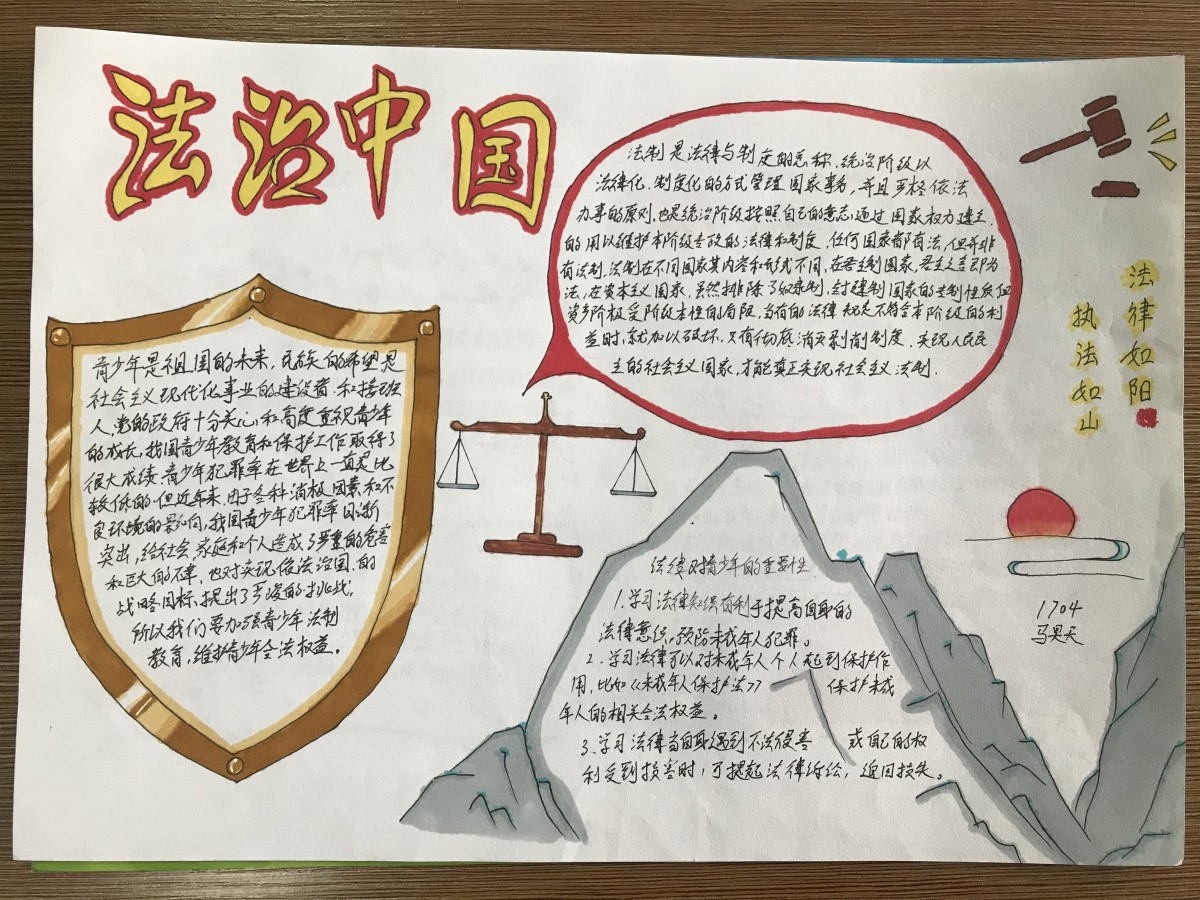 法治中国
法制是法律与制度的总称，统治阶级以
法律化、制度化的方式管理国家事务，并且严格依法
办事的原则，也是统治阶级按照自己的意志，通过国家权力建立
的用以维护本阶级专政的法律和制度，任何国家都有法，但并非
有法制，法制在不同国家其内容和形式不同，在君主制国家，君主之言即为
法，在资本主义国家，虽然排除了奴隶制，封建制国家的专制性质但
资产阶级受阶级本性的局限，当有的法律规定不符合本阶级的利
益时，就加以破坏，只有彻底消灭剥削制度，实现人民民
主的社会主义国家，才能真正实现社会主义法制.
青少年是祖国的未来，民族的希望是
社会主义现代化事业的建设者.和接班
人，党的政府十分关心，和高度重视青少年
的成长，我国青少年教育和保护工作取得了
很大成绩，青少年犯罪率在世界上一直是比
较低的.但近年来，由于各种消极因素和不
良环境的影响，我国青少年犯罪率日渐
突出，给社会、家庭和个人造成了严重的危害
和巨大的不幸，也对实现依法治国，的
战略目标，提出了严峻的挑战，
所以我们要加强青少年法制
教育，维护青少年合法权益。
法律如阳
执法如山
法律对青少年的重要性
1.学习法律知识有利于提高自身的
法律意识，预防未成年人犯罪。
2.学习法律可以对未成年人个人起到保护作
用，比如《未成年人保护法》 保护未成
年人的相关合法权益。
3、学习法律当自身遇到不法侵害 或自己的权
利受到损害时，可提起法律诉讼，追回损失。
1704
马昊天